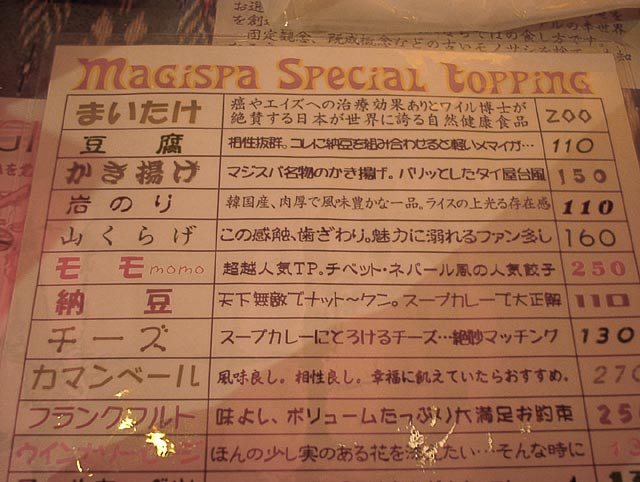 MAGISPA SPECIAL TOPPING
まいたけ 癌やエイズへの治療効果ありとワイル博士が 200
絶賛する日本が世界に誇る自然健康食品
豆腐 相性抜群。コレに納豆を組み合わせると軽いメマイが… 110
かき揚げ マジスパ名物のかき揚げ。パリッとしたタイ屋台風 150
岩のり 韓国産、肉厚で風味豊かな一品。ライスの上光る存在感 110
山くらげ この感触、歯ざわり。魅力に溺れるファン多し 160
モモmomo 超越人気TP。チベット・ネパール風の人気餃子 250
納豆 天下無敵でナット〜クン。スープカレーで大正解 110
チーズ スープカレーにとろけるチーズ…絶妙マッチング 130
カマンベール 風味良し。相性良し。幸福に飢えていたらおすすめ。 270
フランクフルト 味よし、ボリュームたっぷり大満足お約束 25
ほんの少し実のある花を たい…そんな時に